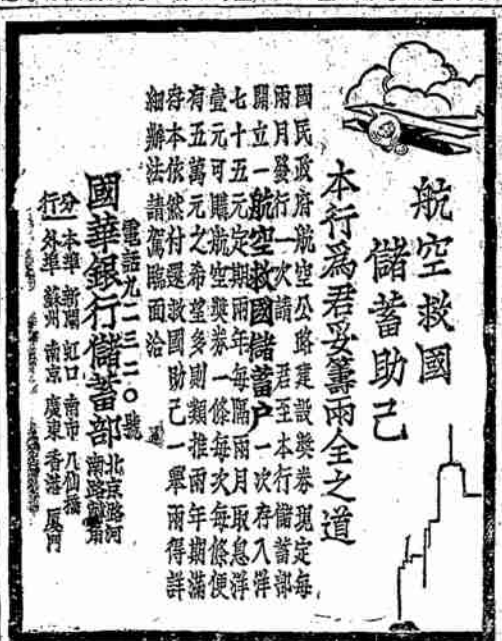 航空救國
儲蓄助己
本行爲君妥籌兩全之道
國民政府航空公路建設奬券現定每
兩月發行一次請 君至本行儲蓄部
開立一航空救國儲蓄户一次存入洋
七十五元定期兩年每隔兩月取息洋
壹元可購航空奬券一條每次每條便
有五萬元之希望多則類推兩年期滿
存本依然付還救國助己一舉兩得詳
細辦法請駕臨面洽
國華銀行儲蓄部
北京路河
南路
電話九二三二〇號
分行
本埠 新閘 虹口 南市 八仙橋
外埠 蘇州 南京 廣東 香港 厦門